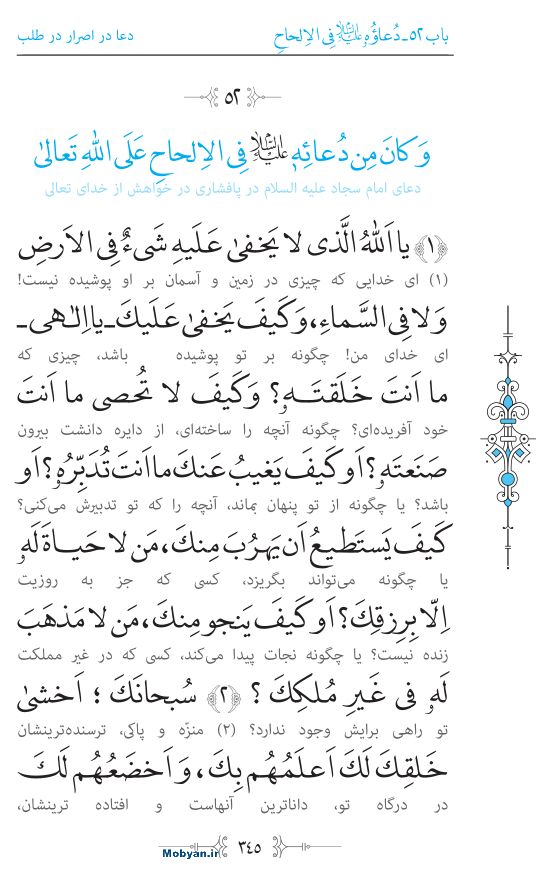 باب ۵۲ ـ دُعاؤُهُ علیه‌السلام فِی الاِلحاحِ
دعا در اصرار در طلب
۵۲
وَ کانَ مِن دُعائِهِ علیه‌السلام فِی الاِلحاحِ عَلَی اللّٰهِ تَعالیٰ
دعای امام سجاد علیه السلام در پافشاری در خواهش از خدای تعالی
﴿۱﴾ یا اَللّٰهُ الَّذی لا یَخفیٰ عَلَیهِ شَیءٌ فِی الاَرضِ
(۱) ای خدایی که چیزی در زمین و آسمان بر او پوشیده نیست!
وَ لا فِی السَّماءِ، وَ کَیفَ یَخفیٰ عَلَیكَ ـ یا اِلٰـهی ـ
ای خدای من! چگونه بر تو پوشیده باشد، چیزی که
ما اَنتَ خَلَقتَـهُ؟ وَ کَیفَ لا تُحصی ما اَنتَ
خود آفریده‌ای؟ چگونه آنچه را ساخته‌ای، از دایره دانشت بیرون
صَنَعتَهُ؟ اَو کَیفَ یَغیبُ عَنكَ ما اَنتَ تُدَبِّرُهُ؟ اَو
باشد؟ یا چگونه از تو پنهان بماند، آنچه را که تو تدبیرش می‌کنی؟
کَیفَ یَستَطیعُ اَن یَهرُبَ مِنكَ، مَن لا حَیـاةَ لَهُ
یا چگونه می‌تواند بگریزد، کسی که جز به روزیت
اِلّا بِرِزقِكَ؟ اَو کَیفَ یَنجو مِنكَ، مَن لا مَذهَبَ
زنده نیست؟ یا چگونه نجات پیدا می‌کند، کسی که در غیر مملکت
لَهُ فی غَیرِ مُلکِكَ؟ ﴿۲﴾ سُبحانَكَ؛ اَخشیٰ
تو راهی برایش وجود ندارد؟ (۲) منزّه و پاکی، ترسنده‌ترینشان
خَلقِكَ لَكَ اَعلَمُهُم بِكَ، وَ اَخضَعُهُم لَكَ
در درگاه تو، داناترین آنهاست و افتاده ترینشان،
۳۴۵
Mobyan.ir